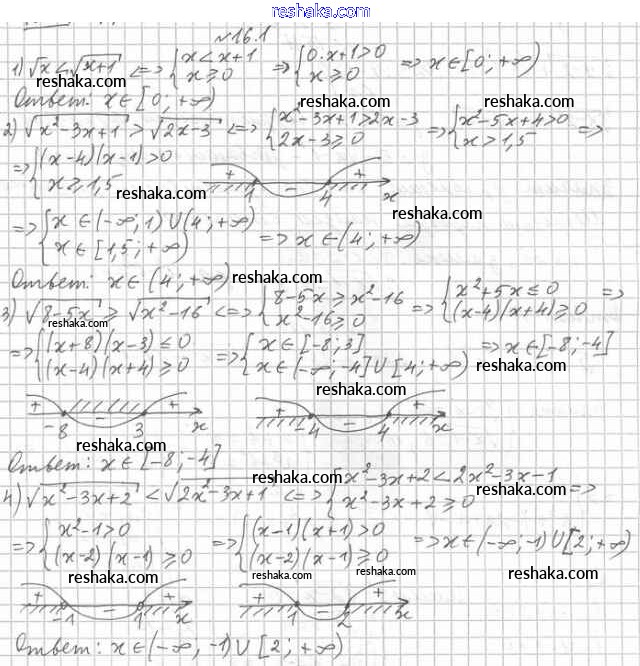 reshaka.com
№16.1
1) √x < √(x+1) <=> {x < x+1 x ⩾ 0 => {0·x+1>0 x ⩾ 0 => x∈[0; +∞)
Ответ: x∈[0; +∞)
reshaka.com reshaka.com
2) √(x²-3x+1) > √(2x-3) <=> {x²-3x+1>2x-3 2x-3⩾0 => {x²-5x+4>0 x>1,5 =>
=> {(x-4)(x-1)>0 x⩾1,5
+ 1 - 4 + x
reshaka.com reshaka.com
=> {x∈(-∞; 1)∪(4; +∞) x∈[1,5; +∞) => x∈(4; +∞)
Ответ: x∈(4; +∞)
reshaka.com
3) √(8-5x) ⩾ √(x²-16) <=> {8-5x⩾x²-16 x²-16⩾0 => {x²+5x≤0 (x-4)(x+4)⩾0 =>
reshaka.com reshaka.com
=> {(x+8)(x-3)≤0 (x-4)(x+4)⩾0 => {x∈[-8; 3] x∈(-∞; -4]∪[4; +∞) => x∈[-8; -4]
reshaka.com
+ -8 - 3 + x
+ -4 - 4 + x
reshaka.com reshaka.com
Ответ: x∈[-8; -4]
4) √(x²-3x+2) < √(2x²-3x+1) <=> {x²-3x+2<2x²-3x-1 x²-3x+2⩾0 =>
reshaka.com reshaka.com
=> {x²-1>0 (x-2)(x-1)⩾0 => {(x-1)(x+1)>0 (x-2)(x-1)⩾0 => x∈(-∞; -1)∪[2; +∞)
reshaka.com reshaka.com reshaka.com
+ -1 - 1 + x
+ 1 - 2 + x
Ответ: x∈(-∞; -1)∪[2; +∞)
reshaka.com